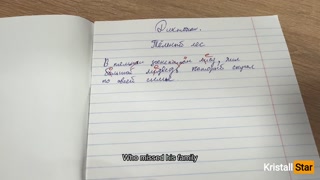 Диктант.
Тёмный лес
В тёмном
большой медведь который скучал
по своей семье
Who missed his family
Kristall Star